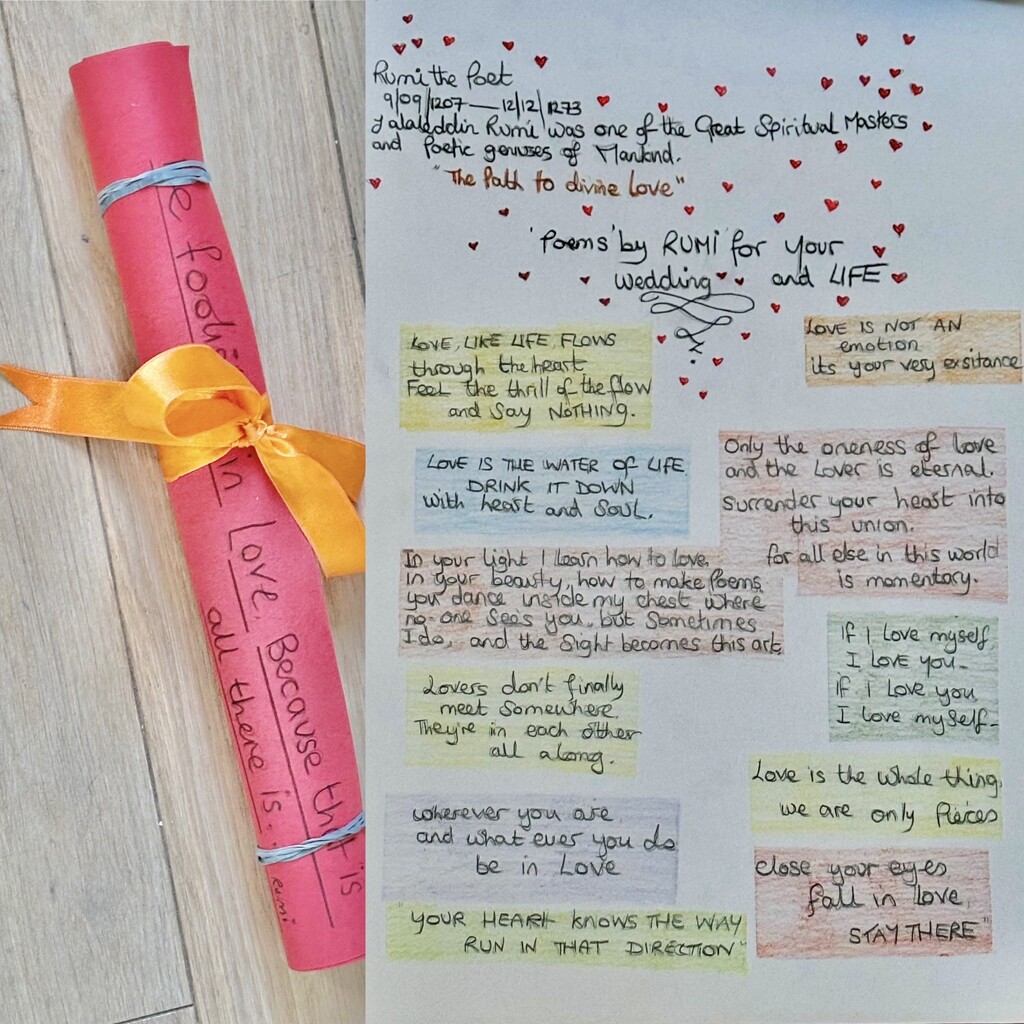 e foolis in Love. Because th t is
all there is.
Rumi
Rumi the Poet
9/09/1207 — 12/12/1273
Jalaleddin Rumi was one of the Great Spiritual Masters
and Poetic genuses of Mankind.
"The Path to divine Love"
'Poems' by RUMI for your
wedding and LIFE
LOVE, LIKE LIFE, FLOWS
through the heart
Feel the thrill of the flow
and Say NOTHING.
LOVE IS NOT AN
emotion
its your very exsitance
LOVE IS THE WATER OF LIFE
DRINK IT DOWN
with heart and SOUL.
Only the oneness of love
and the Lover is eternal.
Surrender your heart into
this union.
for all else in this world
is momentary.
In your light I learn how to love.
in your beauty, how to make Poems.
you dance inside my chest where
no-one sees you, but Sometimes
I do, and the Sight becomes this art.
If I love myself
I Love you-
if I love you
I love myself-
Lovers don't finally
meet Somewhere.
They're in each other
all along.
Love is the whole thing,
we are only Pieces
wherever you are,
and what ever you do
be in Love
close your eyes
fall in love,
STAY THERE"
"YOUR HEART KNOWS THE WAY
RUN IN THAT DIRECTION"